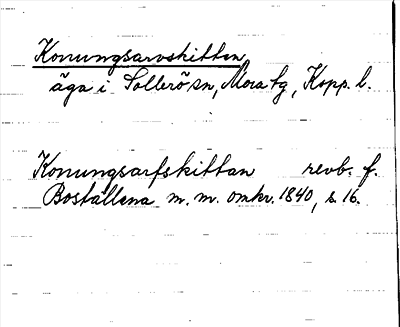 Konungsarvskittan
äga i Sollerö sn, Mora tg, Kopp. l.
Konungsarfskittan revb. f.
Boställena m. m. omkr. 1840, s. 16.